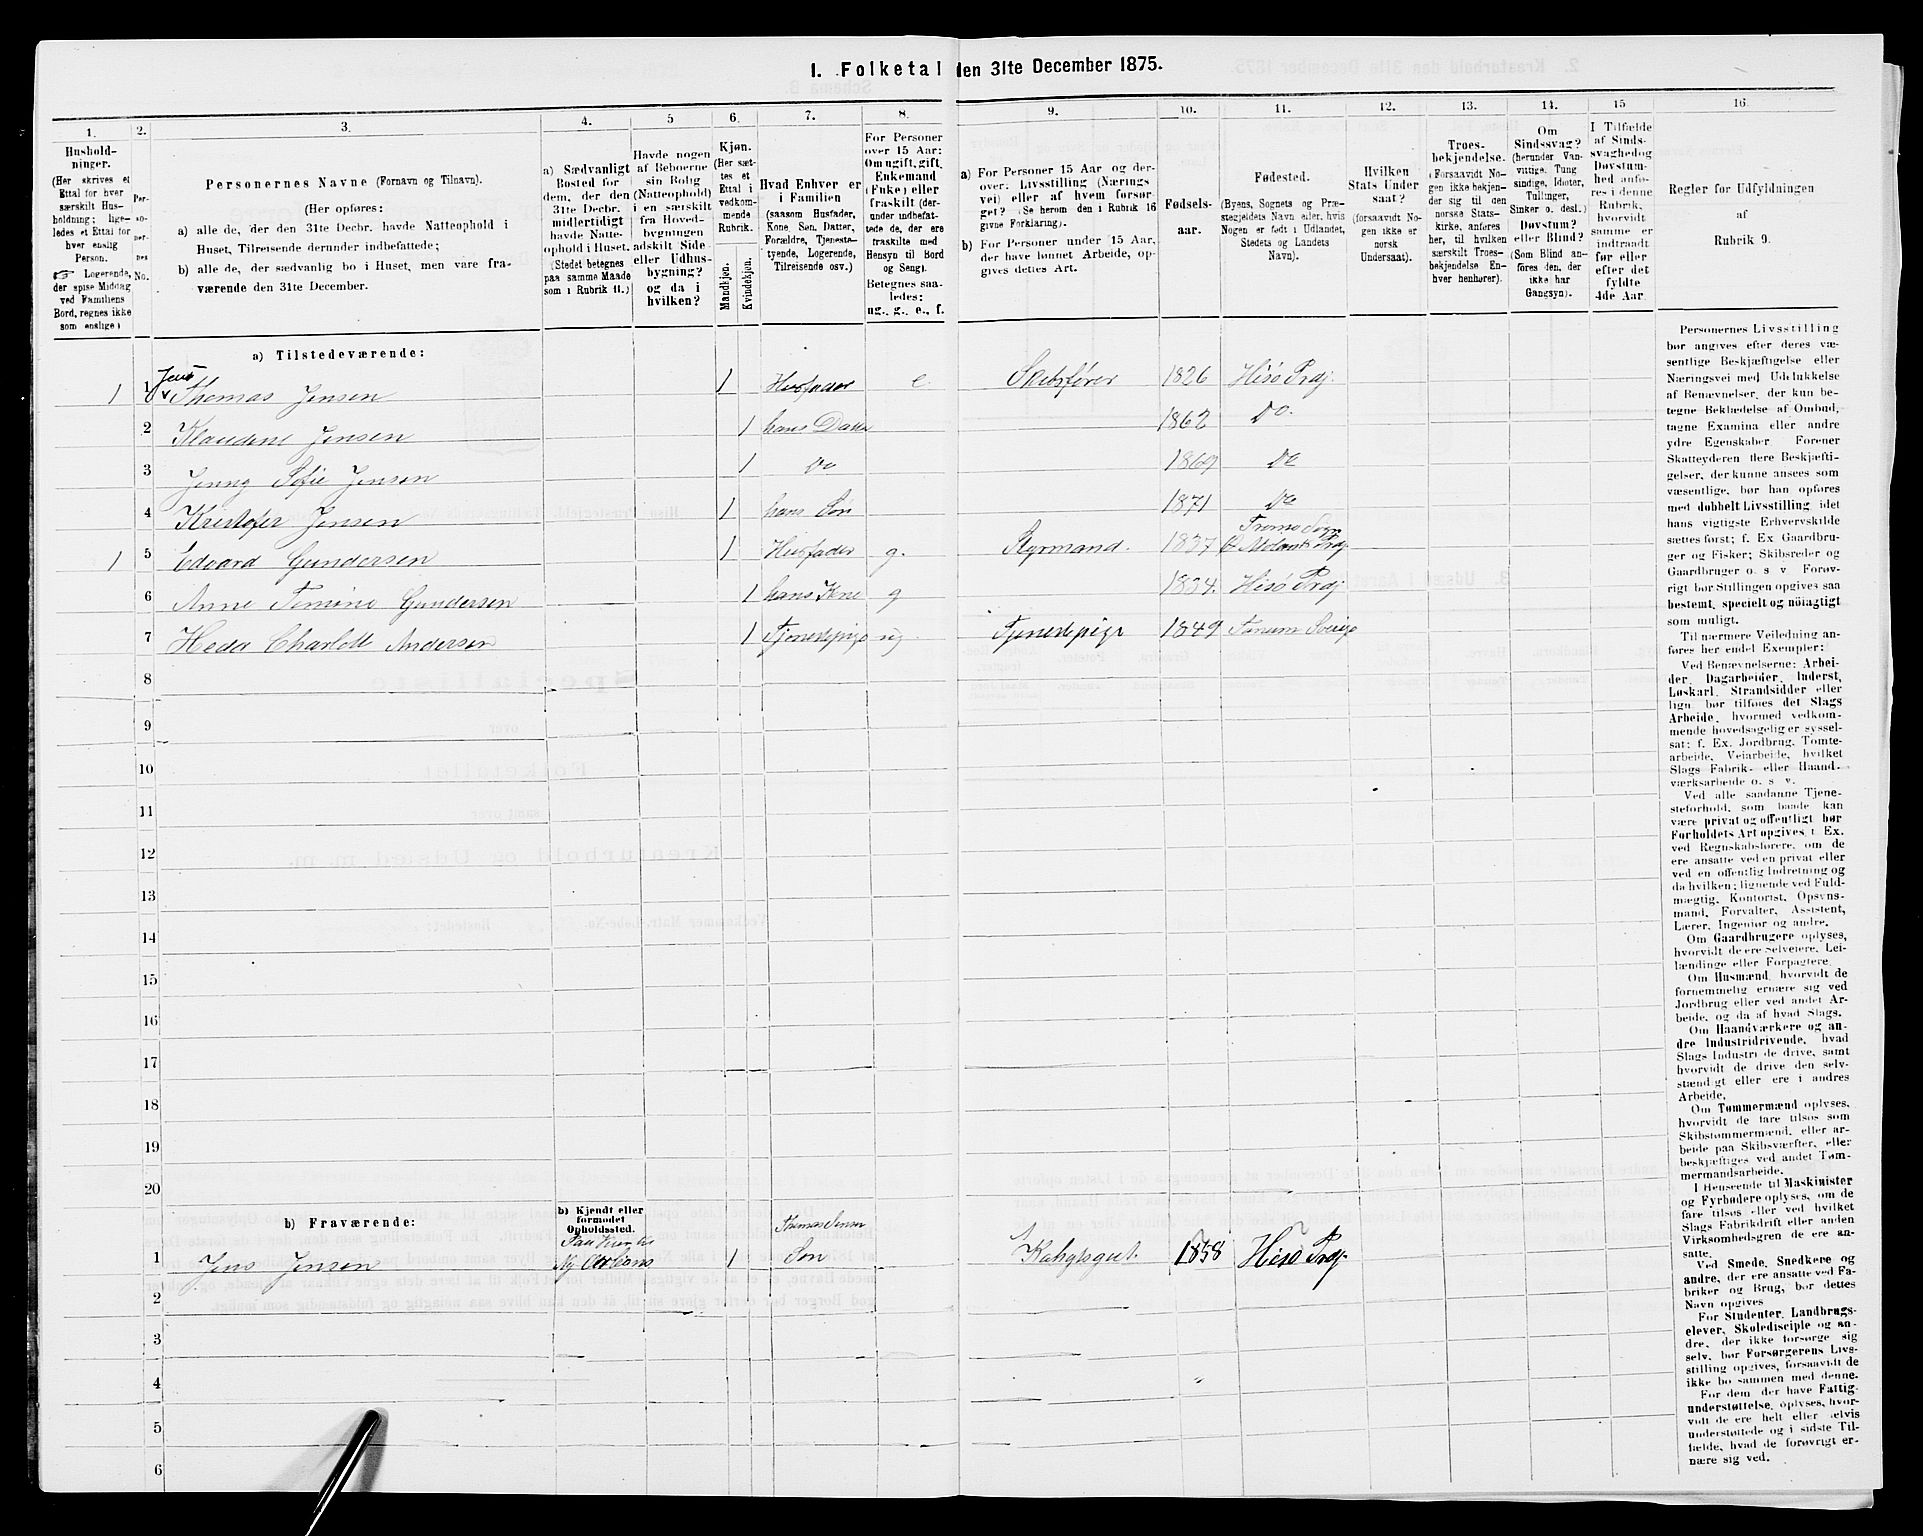 1. Folketal den 31te December 1875.
1. 2. 3. 4. 5 6. 7. 8. 9. 10. 11. 12. 13. 14. 15 16.
Hushold-
ninger.
(Her skrives et
Ettal for hver
særskilt Hus-
holdning; lige-
ledes et Ettal for
hver enslig
Person.
☞ Logerende,
der spise Middag
ved Familiens
Bord, regnes ikke
som enslige)
Per-
so-
ner-
nes
No.
Personernes Navne (Fornavn og Tilnavn).
(Her opføres:
a) alle de, der den 31te Decbr. havde Natteophold i
Huset, Tilreisende derunder indbefattede;
b) alle de, der sædvanlig bo i Huset, men vare fra-
værende den 31te December.
a) Sædvanligt
Bosted for
dem, der den
31te Decbr.
midlertidigt
havde Natte-
ophold i Huset.
(Stedet betegnes
paa samme Maade
som i Rubrik 11.)
Havde nogen
af Beboerne
sin Bolig
(Natteophold)
i en særskilt
fra Hoved-
bygningen
adskilt Side-
eller Udhus-
bygning?
og da i
hvilken?
Kjøn.
(Her sæt-
tes et
Ettal i
vedkom-
mende
Rubrik.
Mandkjøn.
Kvindekjøn.
Hvad Enhver er
i Familien
(saasom Husfader,
Kone, Søn, Datter,
Forældre, Tjeneste-
tyende, Logerende,
Tilreisende osv.)
For Personer
over 15 Aar:
Om ugift, gift,
Enkemand
(Enke) eller
fraskilt (der-
under indbefat-
tede de, der ere
fraskilte med
Hensyn til Bord
og Seng).
Betegnes saa-
ledes:
ug., g., e., f.
a) For Personer 15 Aar og der-
over: Livsstilling (Nærings-
vei) eller af hvem forsør-
get? (Se herom den i Rubrik 16
givne Forklaring).
b) For Personer under 15 Aar,
der have lønnet Arbeide, op-
gives dettes Art.
Fødsels-
aar.
Fødested.
(Byens, Sognets og Præ-
stegjeldets Navn eller, hvis
Nogen er født i Udlandet,
Stedets og Landets
Navn).
Hvilken
Stats Under
saat?
(forsaavidt No-
gen ikke er
norsk
Undersaat).
Troes-
bekjendelse.
(Forsaavidt No-
gen ikke bekjen-
der sig til den
norske Stats-
kirke, anføres
her, til hvilken
særskilt Troes-
bekjendelse En-
hver henhører).
Om
Sindssvag?
(herunder Van-
vittige, Tung
sindige, Idioter,
Tullinger,
Sinker o. desl.)
Døvstum?
eller Blind?
(Som Blind an-
føres den, der
ikke har
Gangsyn).
I Tilfælde
af Sinds-
svaghed og
Døvstum-
hed anfø-
res i denne
Rubrik,
hvorvidt
samme er
indtraadt
før eller
efter det
fyldte
4de Aar.
Regler for Udfyldningen
af
Rubrik 9.
a) Tilstedeværende:
Jens
1 1 Thomas Jensen 1 Husfader e Skibsfører 1826 Hisø Prgj.
2 Klaudene Jensen 1 hans Datter 1862 Do.
3 Jenny Sofie Jensen 1 Do 1869 Do
4 Kristofer Jensen 1 hans Søn 1871 Do
Tromø Sogn
1 5 Edvard Gundersen 1 Husfader g. Styrmand. 1837 Prgj
6 Anne Gundersen 1 hans Kone g 1834. Hisø Prgj
7 Charlotte Andersen 1 Tjenestepige ug Tjenestepige 1849 Tanum Sverige
8
9
10
11
12
13
14
15
16
17
18
19
20
b) Fraværende:
b) Kjendt eller
formodet
Opholdssted.
Thomas Jensen
1 Jens Jensen Ny Orleans 1 Søn 1858 Hisø Prgj.
2
3
4
5
6
Personernes Livsstilling
bør angives efter deres væ-
sentlige Beskjæftigelse eller
Næringsvei med Udelukkelse
af Benævnelser, der kun be-
tegne Beklædelse af Ombud,
tagne Examina eller andre
ydre Egenskaber. Forener
Skatteyderen flere Beskjæfti-
gelser, der kunne ansees som
væsentlige, bør han opføres
med dobbelt Livsstilling, idet
hans vigtigste Erhvervskilde
sættes først; f. Ex Gaardbru-
ger og Fisker; Skibsreder og
Gaardbruger o. s v Forøv-
rigt bør Stillingen opgives saa
bestemt, specielt og nøiagtigt
som muligt.
Til nærmere Veiledning an-
føres her endel Exempler:
Ved Benævnelserne: Arbei-
der, Dagarbeider, Inderst,
Løskarl, Strandsidder eller
lign bør tilføies det Slags
Arbeide, hvormed vedkom-
mende hovedsagelig er syssel-
sat; f. Ex. Jordbrug, Tomte-
arbeide, Veiarbeide, hvilket
Slags Fabrik- eller Haand-
værksarbeide o. s v.
Ved alle saadanne Tjene-
steforhold, som baade kan
være privat og offentligt bør
Forholdets Art opgives, f. Ex.
ved Regnskabsførere, om de
ere ansatte ved en privat eller
ved en offentlig Indretning og
da hvilken; lignende ved Fuld-
mægtig, Kontorist, Opsyns-
mand, Forvalter, Assistent,
Lærer, Ingeniør og andre.
Om Gaardbrugere oplyses,
hvorvidt de ere Selveiere, Lei-
lændinge eller Forpagtere.
Om Husmænd, hvorvidt de
fornemmelig ernære sig ved
Jordbrug eller ved andet Ar-
beide, og da af hvad Slags.
Om Haandværkere og an-
dre Industridrivende, hvad
Slags Industri de drive, samt
hvorvidt de drive den selv-
stændigt eller ere i andres
Arbeide.
Om Tømmermænd oplyses,
hvorvidt de fare tilsøs som
Skibstømmermænd, eller ar-
beide paa Skibsværfter, eller
beskjæftiges ved andet Tøm-
mermandsarbeide.
I Henseende til Maskinister
og Fyrbødere oplyses, om de
fare tilsøs eller ved hvilket
Slags Fabrikdrift eller anden
Virksomhedsgren de ere an-
satte.
Ved Smede, Snedkere og
andre, der ere ansatte ved Fa-
briker og Brug, bør dettes
Navn opgives
For Studenter, Landbrugs-
elever, Skoledisciple og an-
dre, der ikke forsørge sig
selv, bør Forsørgerens Livs-
stilling opgives, forsaavidt de
ikke bo sammen med denne.
For dem, der have Fattig-
understøttelse, oplyses, hvor-
vidt de ere helt eller delvis
understøttede og i sidste Til-
fælde, hvad de forøvrigt er-
nære sig ved.